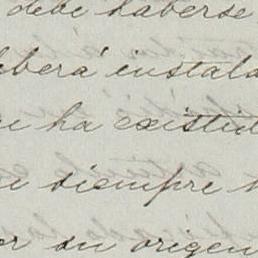 debe haberse
deberá instala
ha existid
siempre
or su origen